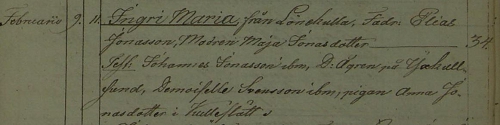 Februario 9. 11. Ingri Maria, från Lönehulta, Fadr: Elias
Jonasson, Modren Maja Jonasdotter 34.
Test: Johannes Jonasson ibm, D: Ågren på
sund, Demoiselle Svensson ibm, pigan Anna Jo-
nasdotter i Kullelått